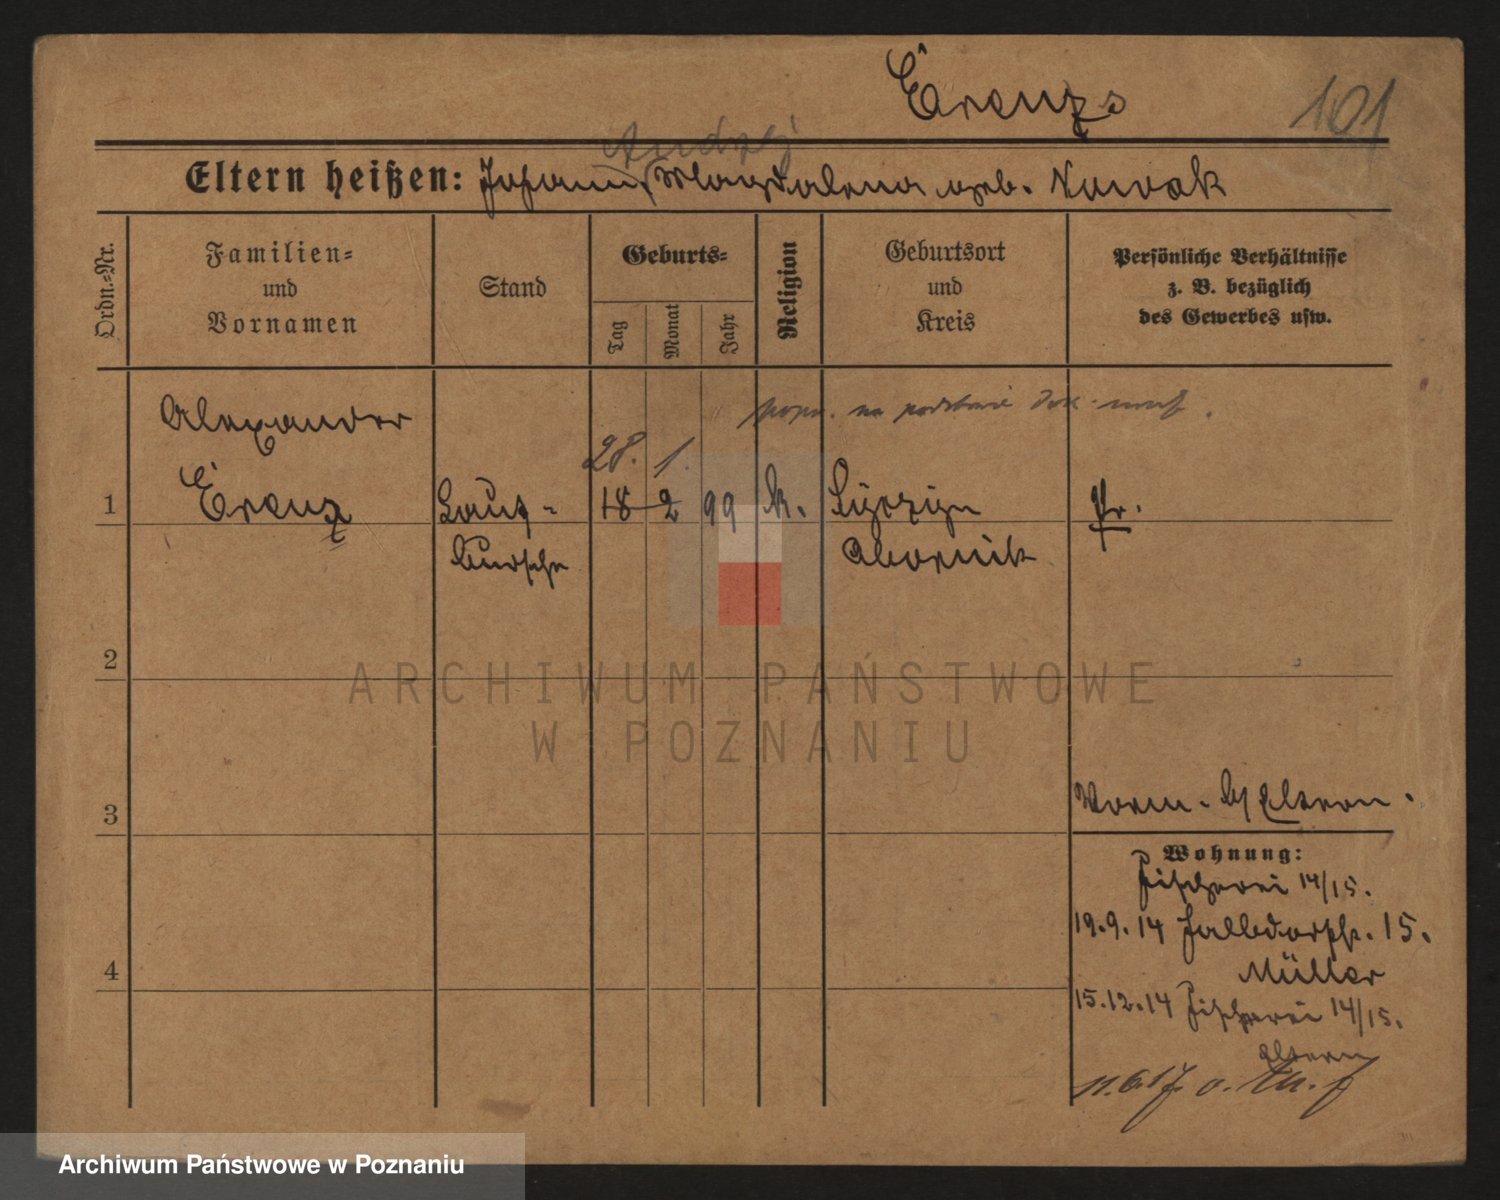 Erenz
101
Andrzej
Eltern heißen: Johann, Magdalena geb. Nowak
Ordn.-Nr.
Familien-
und
Vornamen
Stand
Geburts-
Tag
Monat
Jahr
Religion
Geburtsort
und
Kreis
Persönliche Verhältnisse
z. B. bezüglich
des Gewerbes usw.
Alexander
popr. na podstawie dok.
28. 1.
1 Erenz Lauf- 18 2 99 k. Pr.
bursche Obornik
2
3
Vorm. Eltern.
Wohnung:
Fischerei 14/15.
19.9.14 Halbdorfstr. 15.
Müller
4
15.12.14 Fischerei 14/15.
Eltern
11.6.17.
ARCHIWUM PAŃSTWOWE
W POZNANIU
Archiwum Państwowe w Poznaniu